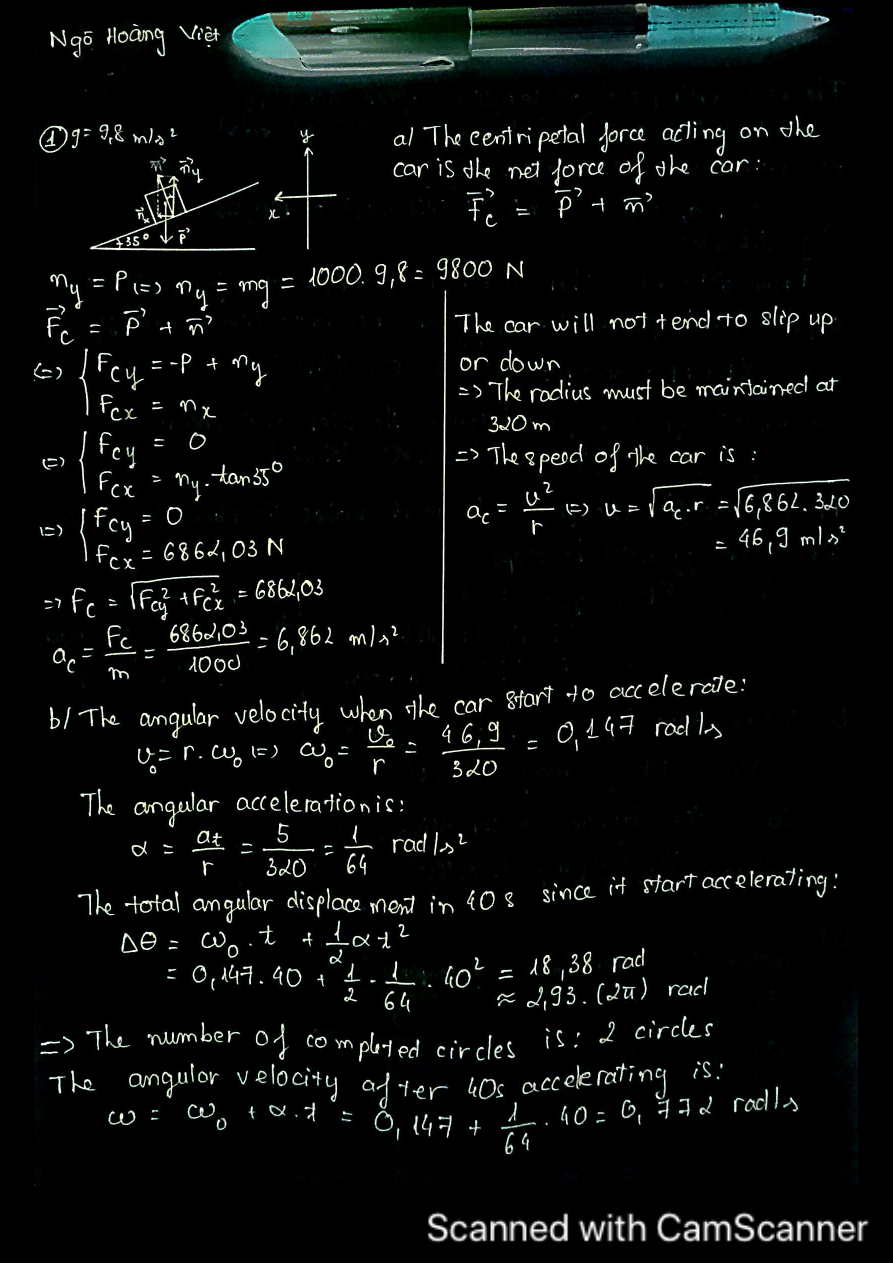 Ngô Hoàng Việt
① g = 9,8 m/s²
y
x
n⃗ n⃗y
n⃗x
35° P⃗
a/ The centripetal force acting on the
car is the net force of the car:
F⃗c = P⃗ + n⃗
ny = P (=) ny = mg = 1000. 9,8 = 9800 N
F⃗c = P⃗ + n⃗
(=) { Fcy = -P + ny
Fcx = nx
(=) { Fcy = 0
Fcx = ny. tan35°
(=) { Fcy = 0
Fcx = 6862,03 N
=> Fc = √(Fcy² + Fcx²) = 6862,03
ac = Fc/m = 6862,03/1000 = 6,862 m/s²
The car will not tend to slip up
or down
=> The radius must be maintained at
320 m
=> The speed of the car is :
ac = v²/r (=) v = √(ac.r) = √(6,862. 320)
= 46,9 m/s²
b/ The angular velocity when the car start to accelerate:
v₀ = r. ω₀ (=) ω₀ = v₀/r = 46,9/320 = 0,147 rad/s
The angular acceleration is:
α = at/r = 5/320 = 1/64 rad/s²
The total angular displacement in 40 s since it start accelerating:
Δθ = ω₀. t + 1/2 αt²
= 0,147. 40 + 1/2 . 1/64 . 40² = 18,38 rad
≈ 2,93. (2π) rad
=> The number of completed circles is: 2 circles
The angular velocity after 40s accelerating is:
ω = ω₀ + α.t = 0,147 + 1/64 . 40 = 0,772 rad/s
Scanned with CamScanner